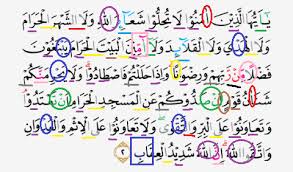 يَٰٓأَيُّهَا الَّذِينَ ءَامَنُوا لَا تُحِلُّوا شَعَٰٓئِرَ اللَّهِ وَلَا الشَّهْرَ الْحَرَامَ
وَلَا الْهَدْيَ وَلَا الْقَلَٰٓئِدَ وَلَآ ءَآمِّينَ الْبَيْتَ الْحَرَامَ يَبْتَغُونَ
فَضْلًا مِّن رَّبِّهِمْ وَرِضْوَٰنًا وَإِذَا حَلَلْتُمْ فَاصْطَادُوا وَلَا يَجْرِمَنَّكُمْ
شَنَـَٔانُ قَوْمٍ أَن صَدُّوكُمْ عَنِ الْمَسْجِدِ الْحَرَامِ أَن تَعْتَدُوا
وَتَعَاوَنُوا عَلَى الْبِرِّ وَالتَّقْوَىٰ وَلَا تَعَاوَنُوا عَلَى الْإِثْمِ وَالْعُدْوَٰنِ
وَاتَّقُوا اللَّهَ إِنَّ اللَّهَ شَدِيدُ الْعِقَابِ ٢